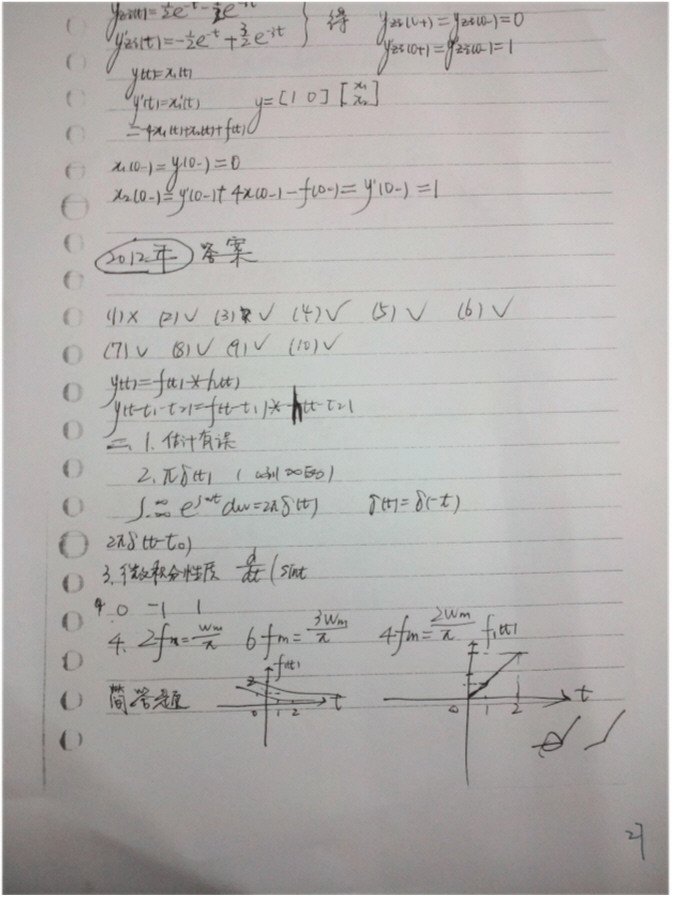 yzi(t)=½e^-t-½e^-3t
y'zi(t)=-½e^-t+3/2e^-3t } 得 yzi(0+)=yzi(0-)=0
y'zi(0+)=y'zi(0-)=1
y(t)=x₁(t)
y'(t)=x₁'(t) y=[1 0][x₁ x₂]
=-4x₁(t)+x₂(t)+f(t)
x₁(0-)=y(0-)=0
x₂(0-)=y'(0-)+4x(0-)-f(0-)=y'(0-)=1
2012年 答案
(1)× (2)√ (3)√ (4)√ (5)√ (6)√
(7)√ (8)√ (9)√ (10)√
y(t)=f(t)*h(t)
y(t-t₁-t₂)=f(t-t₁)*h(t-t₂)
二 1. 估计有误
2. πδ(t)
∫-∞^∞ e^jwt dw=2πδ(t) δ(t)=δ(-t)
2πδ(t-t₀)
3. 微积分性质 d/dt(sint
4 0 -1 1
4. 2fm=wm/π 6fm=3wm/π 4fm=2wm/π f₁(t)
简答题 f(t) 2 0 1 2 t 0 1 2 t
21